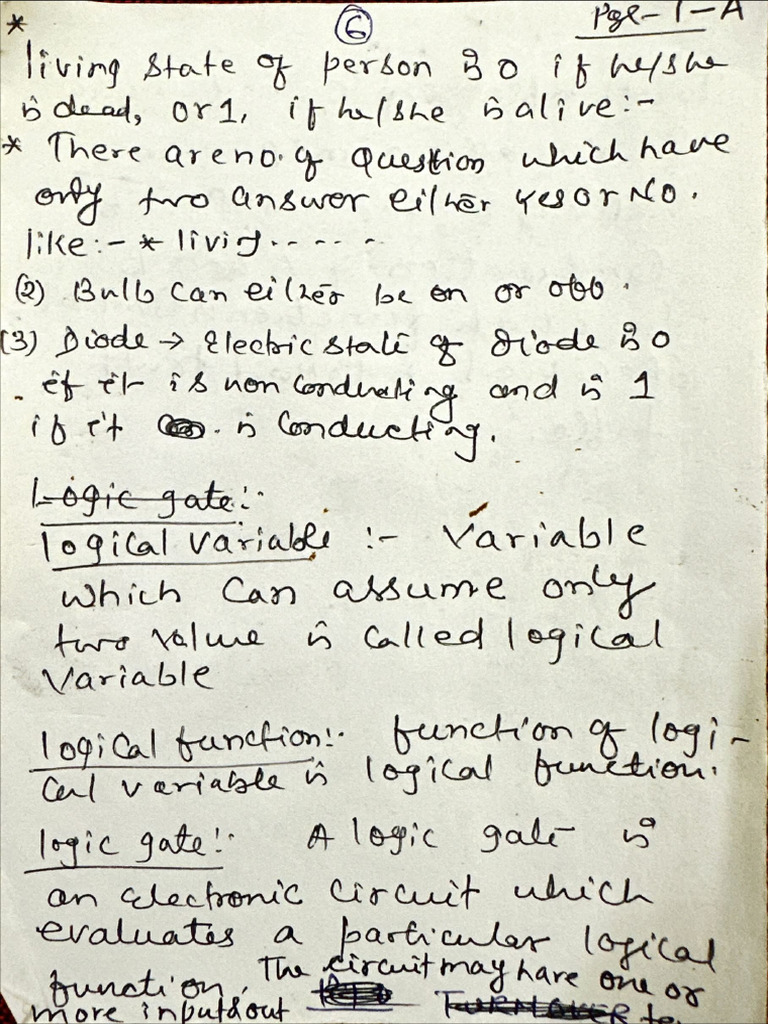 * 6 Pge-1-A
living state of person is 0 if he/she
is dead, or 1, if he/she is alive:-
* There are no. of Question which have
only two answer either yes or No.
like:- * living.....
(2) Bulb Can either be on or off.
(3) Diode → Electric state of diode is 0
if it is non Conducting and is 1
if it is Conducting.
Logic gate:-
logical variable :- Variable
which Can assume only
two value is called logical
variable
logical function:- function of logi-
cal variable is logical function.
logic gate:- A logic gate is
an electronic circuit which
evaluates a particular logical
function. The circuit may have one or
more input & out TURN OVER